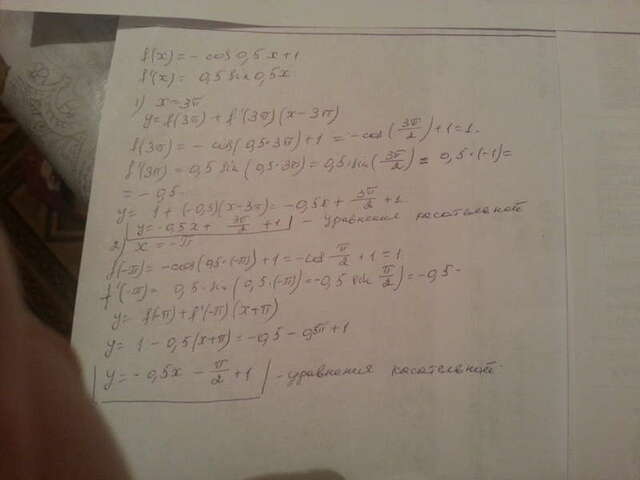 f(x) = - cos 0,5x+1
f'(x) = 0,5 sin 0,5x
1) x=3π
y= f(3π) + f'(3π)(x-3π)
f(3π) = - cos(0,5·3π)+1 = -cos(3π/2)+1=1.
f'(3π) = 0,5 sin (0,5·3π)= 0,5·sin(3π/2) = 0,5·(-1)=
= -0,5.
y= 1+(-0,5)(x-3π)= -0,5x+ 3π/2 +1.
y= -0,5x+ 3π/2 +1 - уравнения касательной
2) x = -π
f(-π)= -cos(0,5·(-π))+1=-cos π/2 +1=1
f'(-π)= 0,5·sin(0,5·(-π))=-0,5 sin π/2)= -0,5.
y= f(-π)+f'(-π)(x+π)
y= 1-0,5(x+π)=-0,5-0,5π+1
y= -0,5x - π/2 +1 - уравнения касательной.